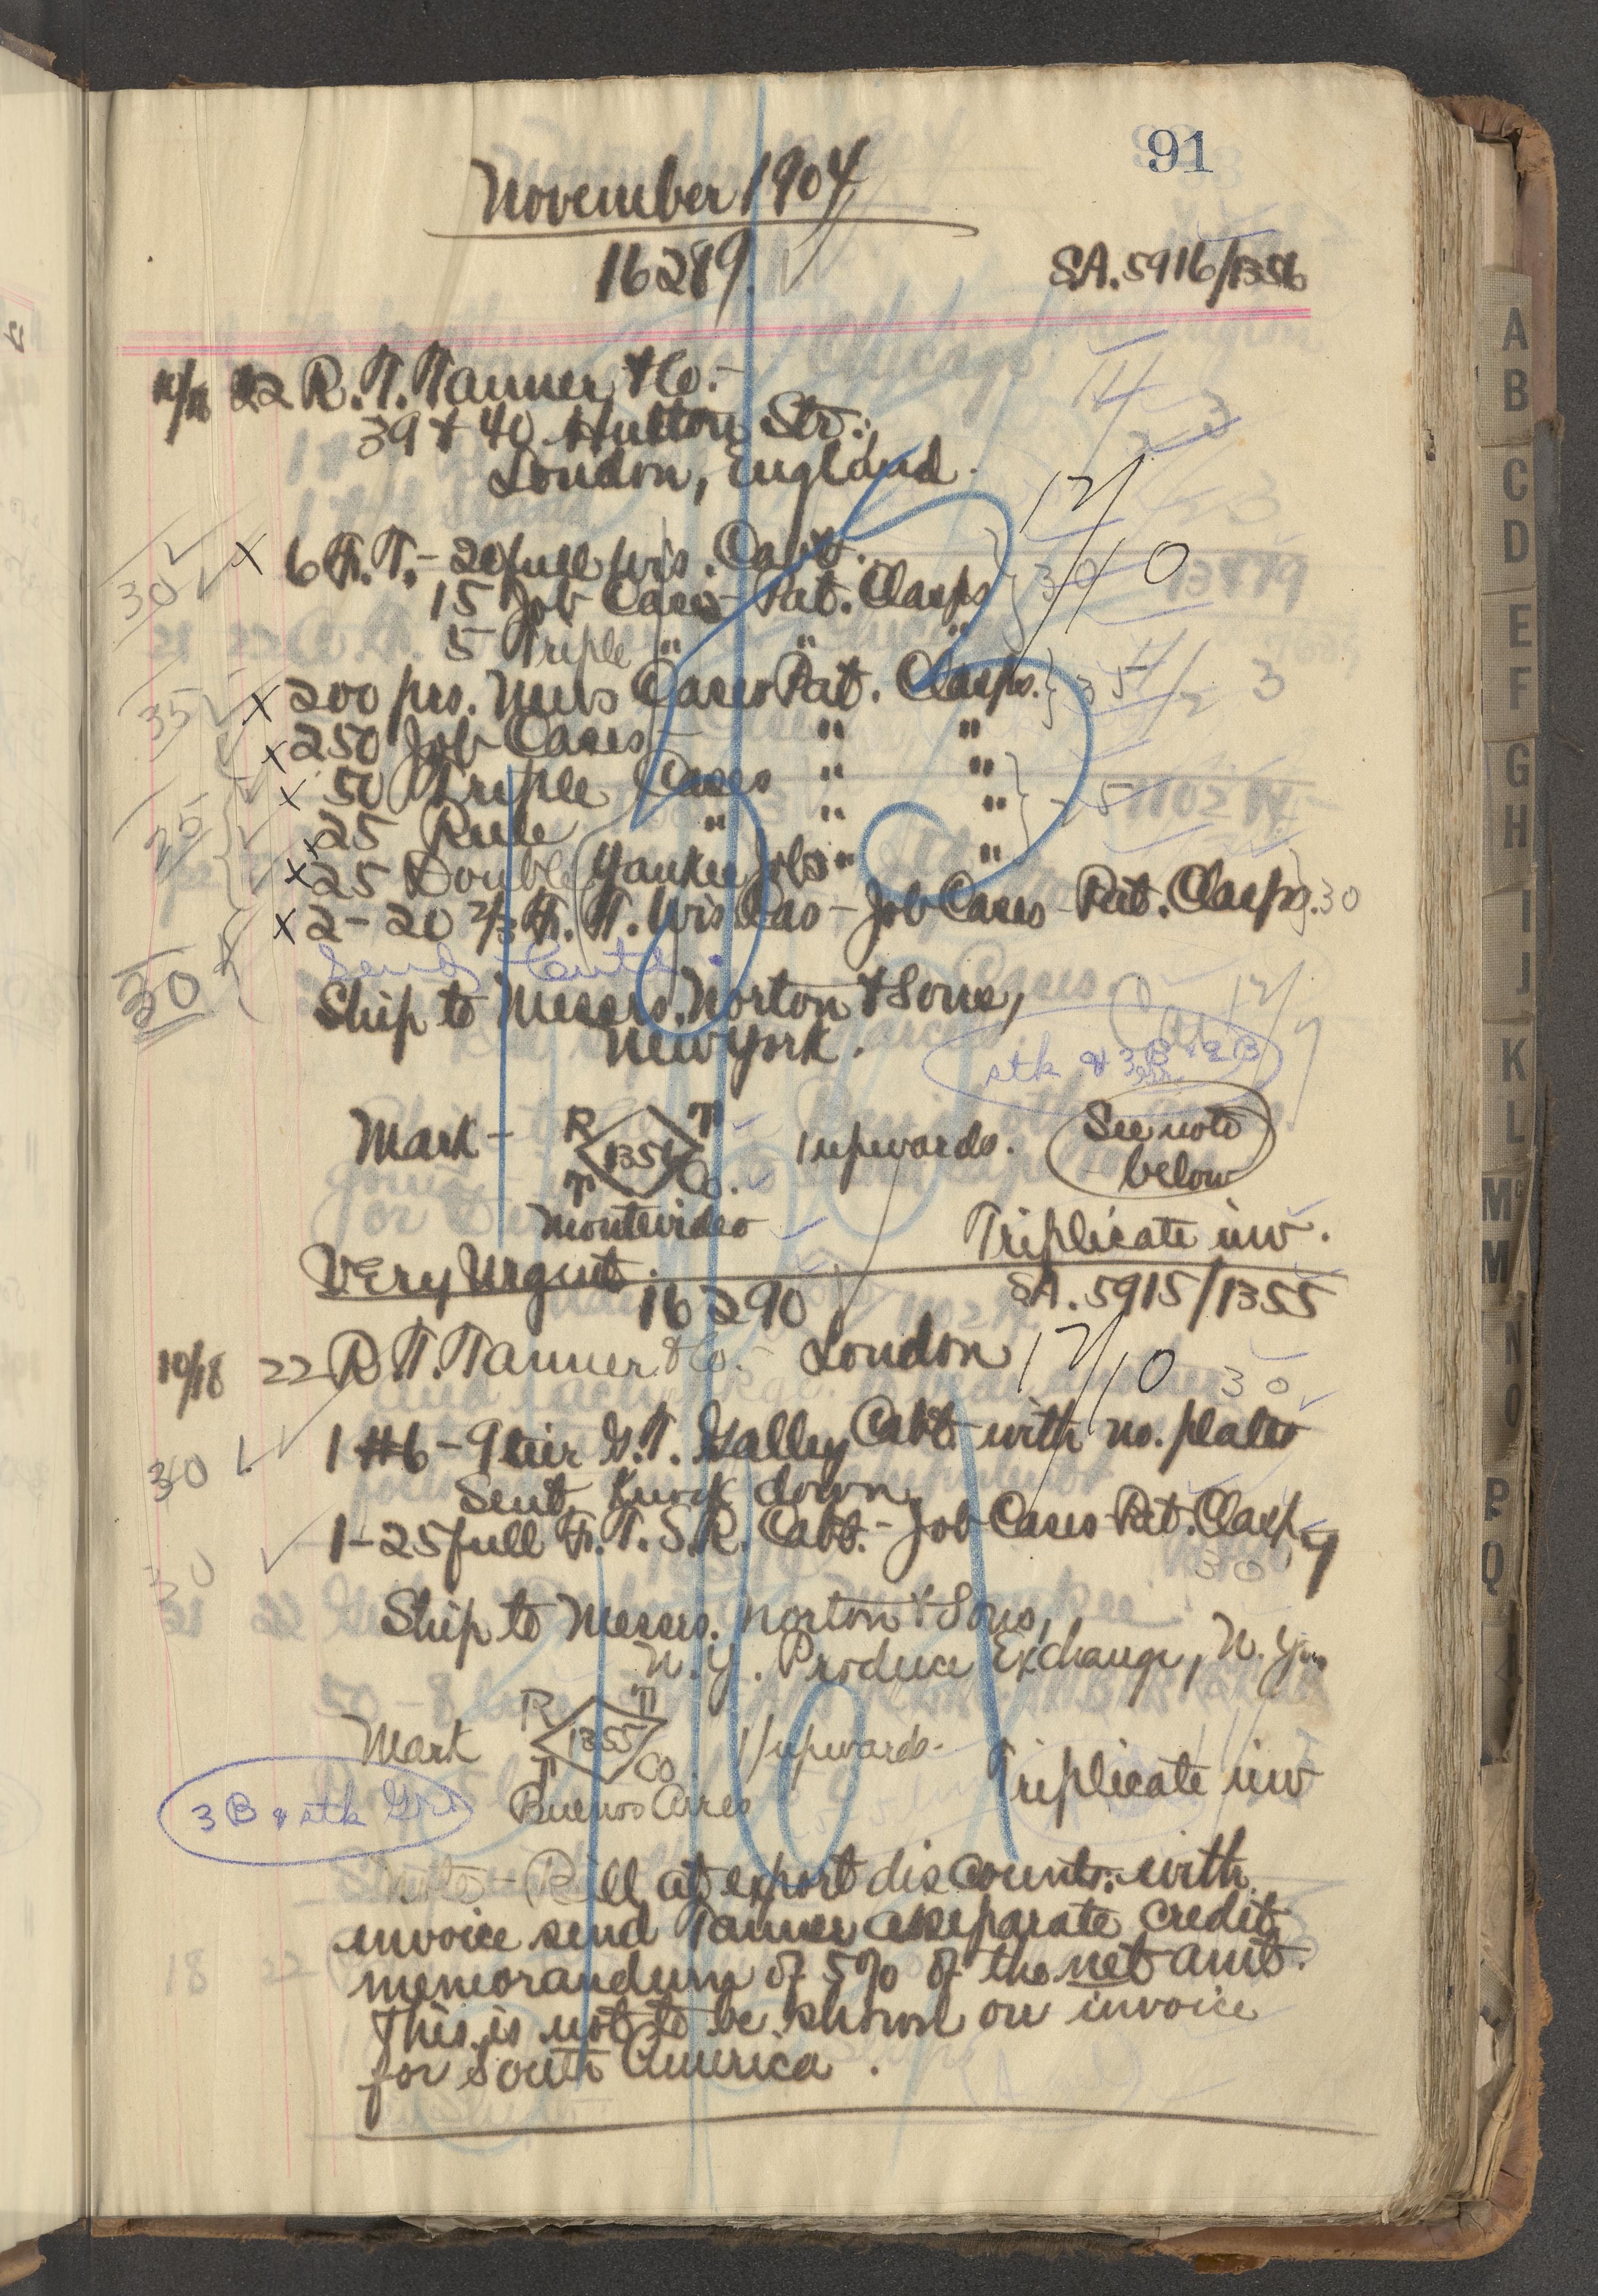 91
November 1904
16289 SA. 5916/1356
10/18 22 R. T. Tanner & Co. -
39 & 40 Hutton Str.,
London, England.
12/10
30 x 6 F. T. - 20 full Wis. Cabt. 30
15 Job Cases Pat. Clasps
5 Triple " " "
35 x 200 prs. News Cases Pat. Clasps. 35
x 250 Job Cases - " "
x 50 Triple Cases " " 25
25 x 25 Rule " " "
x 25 Double Yankee Jobs " "
x 2 - 20 2/3 F. T. Wis Cas - Job Cases - Pat. Clasps. 30
30
Ship to Messrs. Norton & Sons,
New York.
stk & 3B & 2B
Mark - R T 1356 T Co. 1 upwards. See note
below
Montevideo
Triplicate inv.
Very Urgent.
16290 SA. 5915/1355
10/18 22 R. T. Tanner & Co. - London 12/10
30
30 1 #6 - 9 tier G. T. Galley Cabt. with no. plates
Sent Knock down
30 1 - 25 full F. T. S. R. Cabt. - Job Cases Pat. Clasps
30
Ship to Messrs. Norton & Sons,
N. Y. Produce Exchange, N. Y.
Mark R T 1355 T Co. 1/upwards -
Triplicate inv
3 B & stk Gr
Buenos Aires
Note - Bill at export discounts: with
invoice send Tanner a separate credit
memorandum of 5% of the net amt.
This is not to be shown on invoice
for South America.
A
B
C
D
E
F
G
H
I
J
K
L
Mc
M
N
O
P
Q